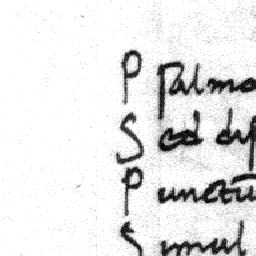 P palmo
S ed dip
P unctū
S imul